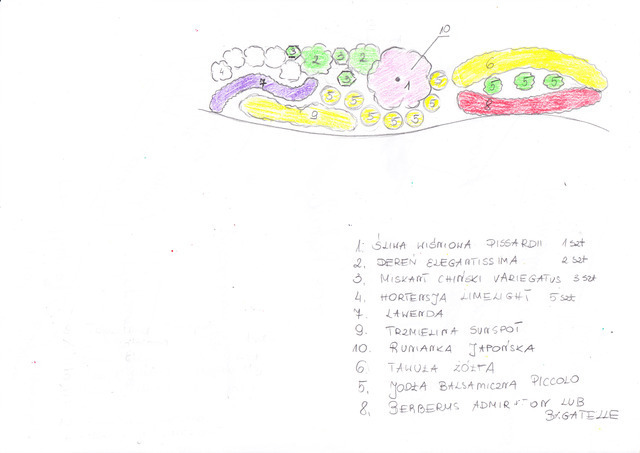 10
3 3 2 2
4 3 1 6
7 5 5 5
5 5 5 5
9 5 5 5 5 8
1. ŚLIWA WIŚNIOWA PISSARDII 1 szt
2. DEREŃ ELEGANTISSIMA 2 szt
3. MISKANT CHIŃSKI VARIEGATUS 3 szt
4. HORTENSJA LIMELIGHT 5 szt
7. LAWENDA
9. TRZMIELINA SUNSPOT
10. RUNIANKA JAPOŃSKA
6 TAWUŁA ŻÓŁTA
5. JODŁA BALSAMICZNA PICCOLO
8. BERBERYS LUB